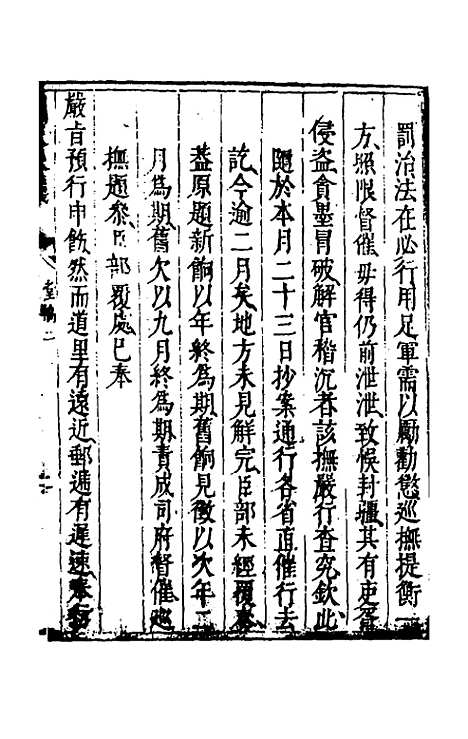 罰治法在必行用足軍需以勵勸懲巡撫提衡一
方照限督催毋得仍前泄泄致悞封疆其有吏胥
侵盗貪墨冒破解官稽沉者該撫嚴行查究欽此
隨於本月二十三日抄案通行各省直催行去
訖今逾二月矣地方未見解完臣部未經覆
蓋原題新餉以年終為期舊餉見徵以次年二
月為期舊欠以九月終為期責成司府督催巡
撫題叅臣部覆處已奉
嚴旨預行申飭然而道里有遠近郵遞有遲速奉
堂稿 二